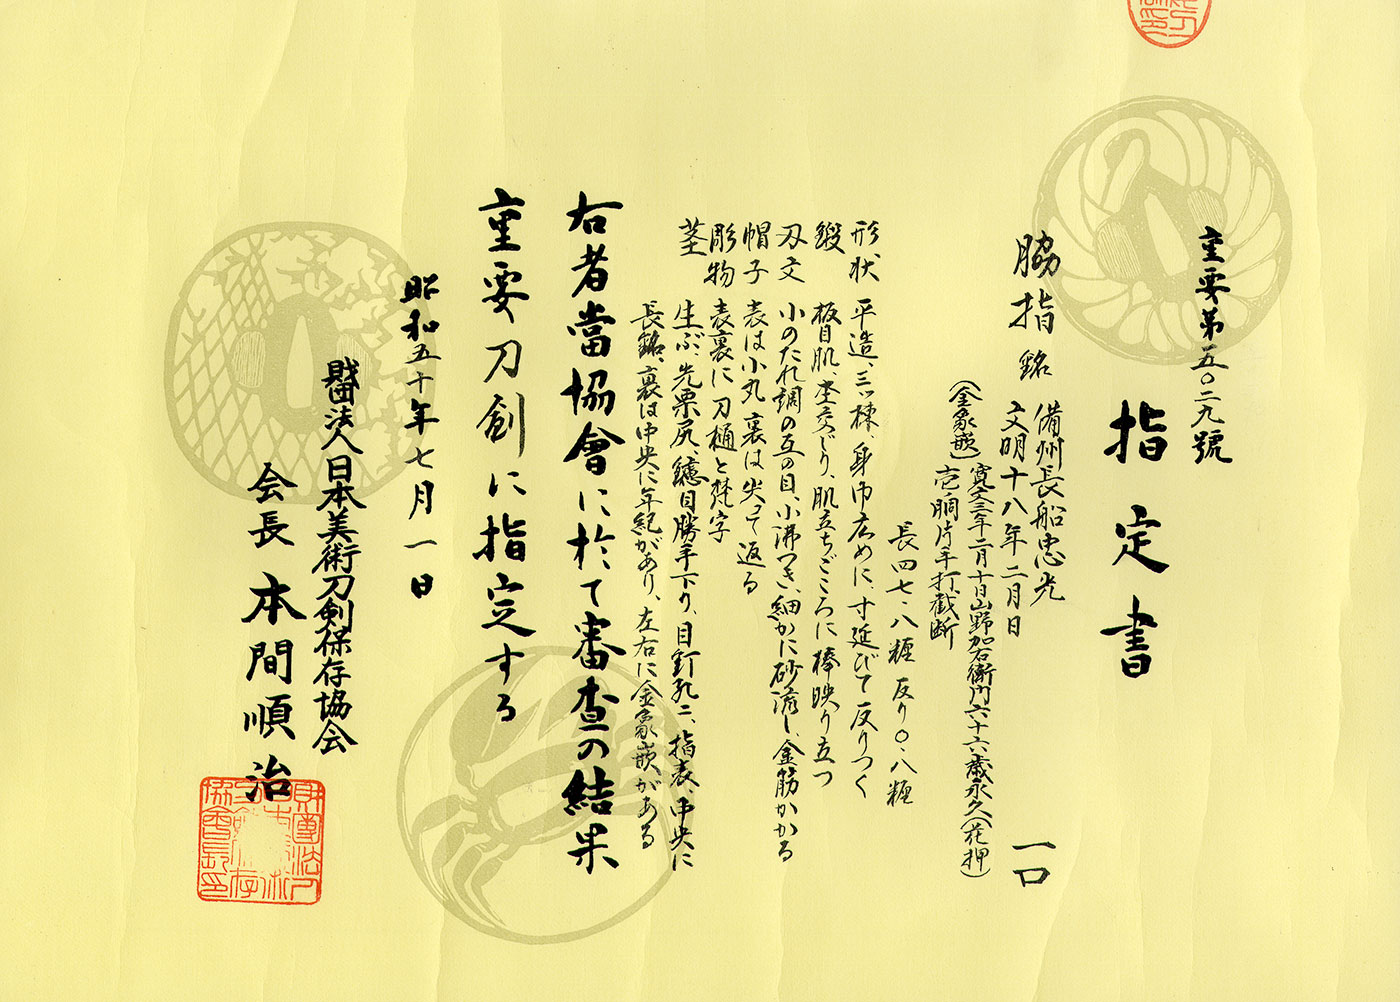 重要第五〇二九號
指定書
脇指 銘 備州長船忠光 一口
文明十八年二月日
(金象嵌) 寛文三年二月十日山野加右衛門六十六歳永久(花押)
壱胴片手打截断
長四七・八糎 反り〇・八糎
形状 平造、三ッ棟、身巾広めに、寸延びて反りつく
鍛 板目肌、杢交じり、肌立ちごころに棒映り立つ
刃文 小のたれ調の互の目、小沸つき、細かに砂流し、金筋かかる
帽子 表は小丸 裏は尖って返る
彫物 表裏に刀樋と梵字
茎 生ぶ、先栗尻、鑢目勝手下り、目釘孔二、指表、中央に
長銘、裏は中央に年紀があり、左右に金象嵌がある
右者當協會に於て審査の結果
重要刀剣に指定する
昭和五十年七月一日
財団法人日本美術刀剣保存協会
会長 本間順治